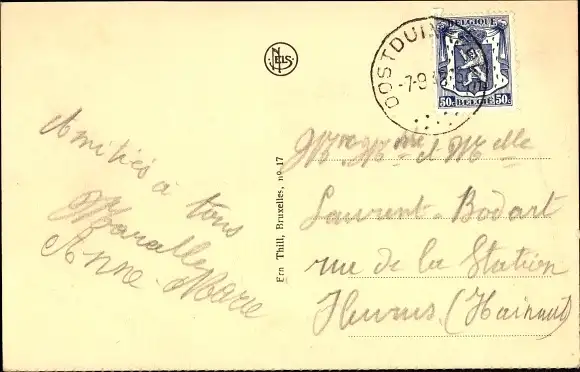 BELGIQUE
50c 50c
BELGIË
OOSTDUIN
-7-9
NELS
Amitiés à tous
Marcelle
Anne-Marie
Ern Thill, Bruxelles, no 17
Mr Mme et Melle
Laurent-Bodart
rue de la Station
Fleurus (Hainaut)